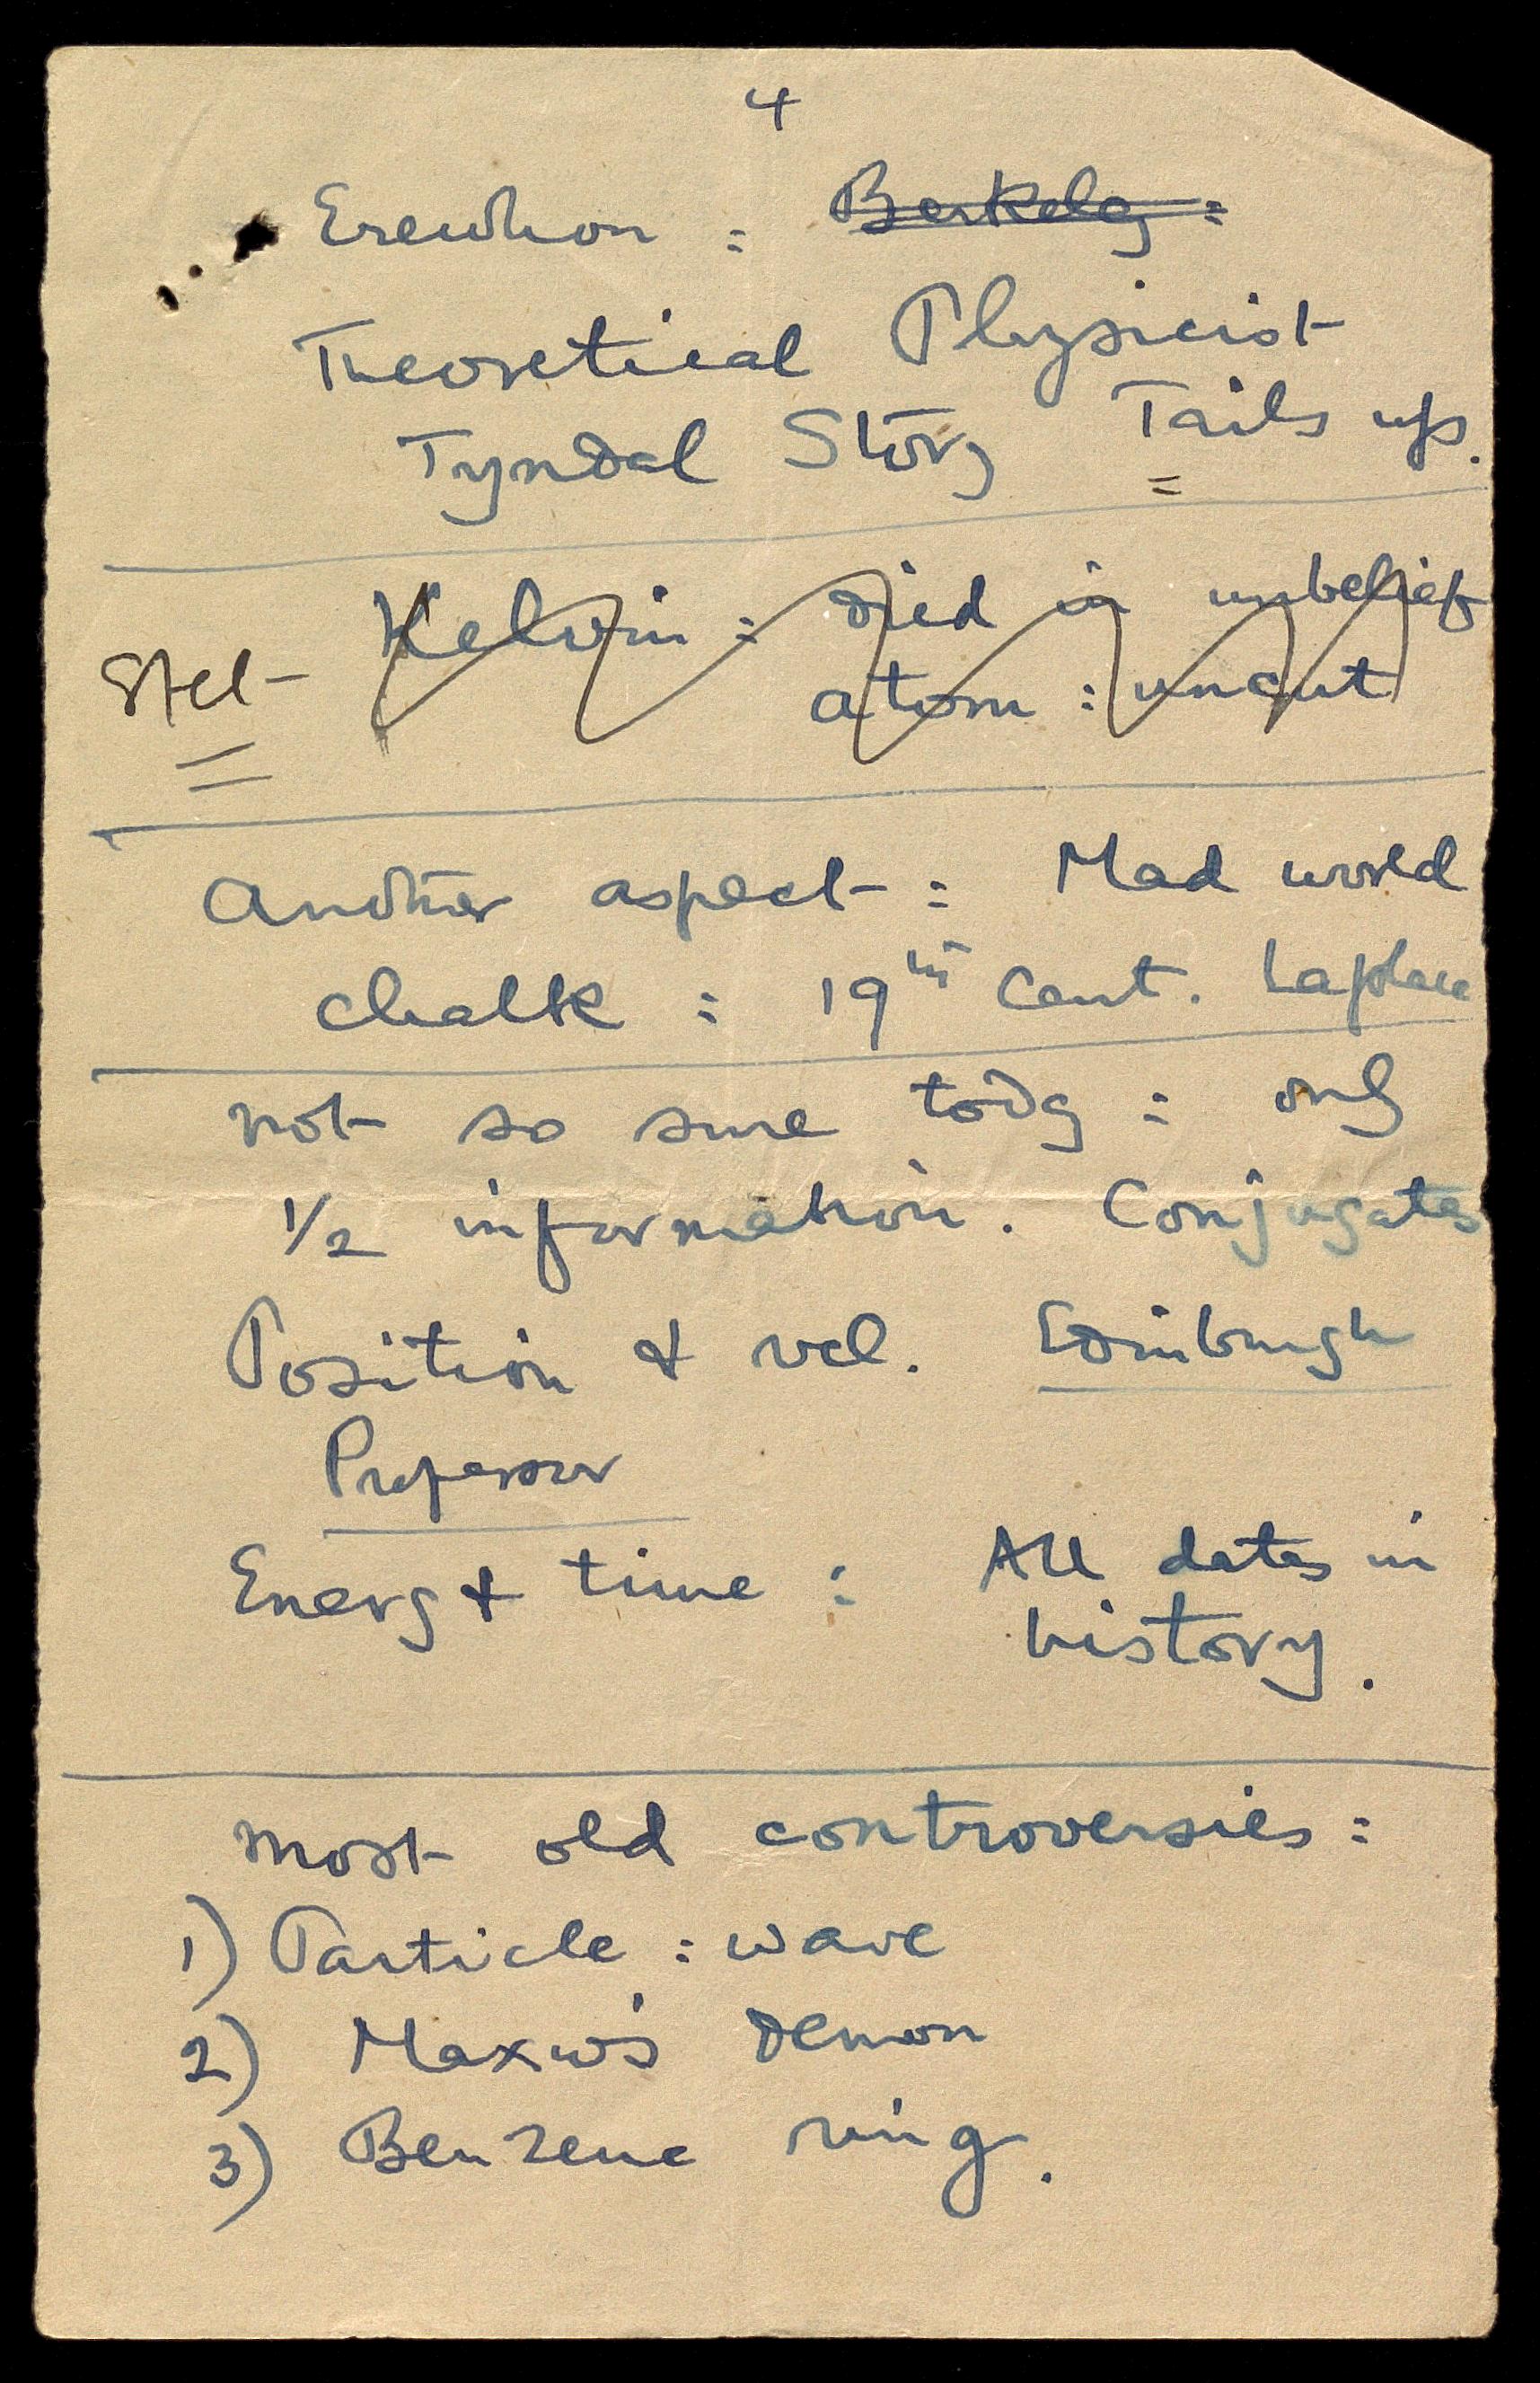 4
Erewhon : Berkeley :
Theoretical Physicist
Tyndal Story Tails up.
Kelvin : died in unbelief
Stet atom : uncut
Another aspect : Mad world
chalk : 19th Cent. Laplace
not so sure today : only
1/2 information. Conjugates
Position & vel. Edinburgh
Professor
Energy & time : All dates in
history.
Most old controversies :
1) Particle : wave
2) Maxw's Demon
3) Benzene ring.